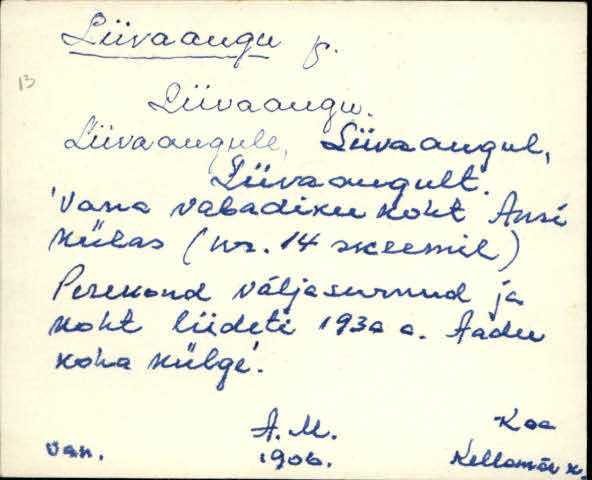 Liivaaugu p.
13
Liivaaugu.
Liivaaugule, Liivaaugul,
Liivaaugult.
'Vana vabadiku koht Ansi
külas (nr. 14 skeemil)
Perekond väljasurnud ja
koht liideti 1930 a. Aadu
koha külge'.
A. M. Kaa
van. 1906. Kellamäe k.